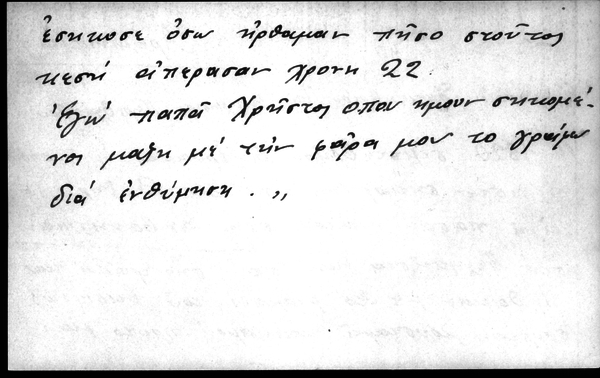 ἐσηκοσε ὁσω ἠρθαμαν πῆσο στοῦτος
κεση αἰπερασαν χρονη 22
Ἐγώ παπᾶ Χρῆστος οπου ημουν σηκομέ-
νοι μαζη μέ τήν φάρα μου το γράφω
διά ἐνθύμηση . ,,